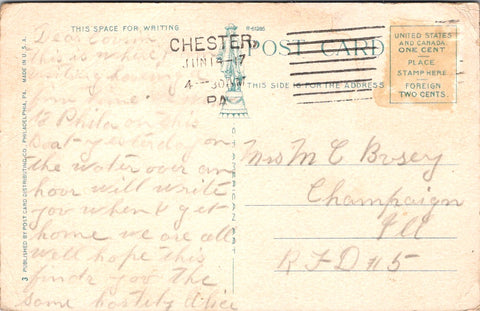 THIS SPACE FOR WRITING
R-61285
POST CARD
THIS SIDE IS FOR THE ADDRESS
UNITED STATES
AND CANADA
ONE CENT
PLACE
STAMP HERE
FOREIGN
TWO CENTS.
CHESTER,
JUN 14 17
4-30P
PA.
3 PUBLISHED BY POST CARD DISTRIBUTING CO., PHILADELPHIA, PA. MADE IN U.S.A.
Dear Cousin
this is what
writing
home.
Phila on this
Boat yesterday on
the water over an
hour will write
you when I get
home we are all
well hope this
finds you the
same hastily Alice
Mrs M C Busey
Champaign
Ill
R F D #5